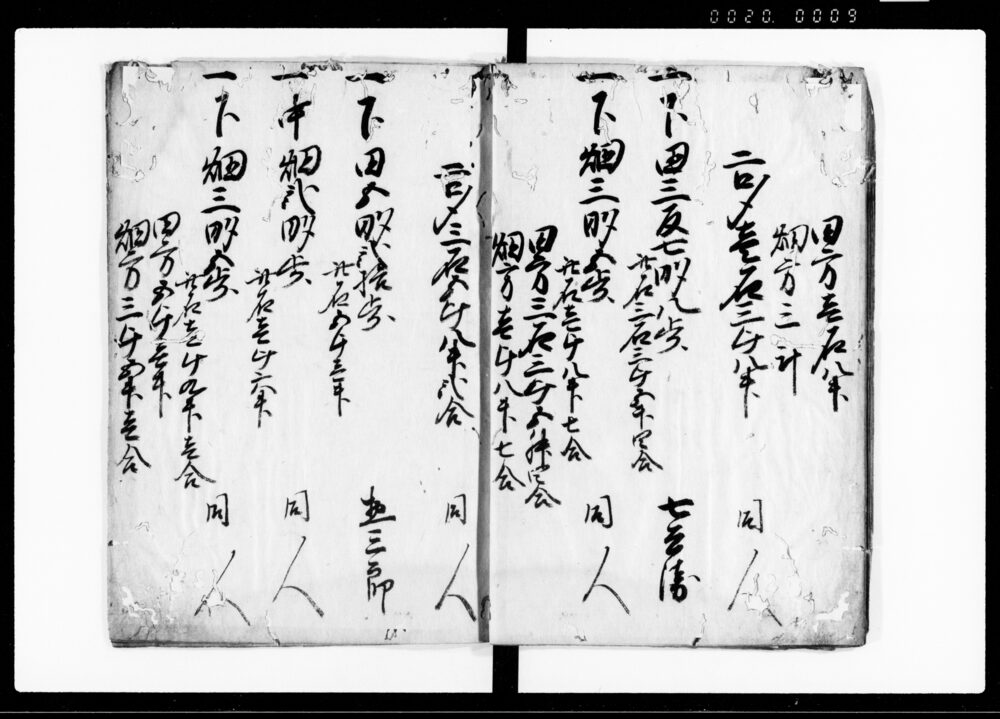 0020. 0009
田方壱石八升
畑方三斗
二口〆壱石三斗八升 同人
一下田三反七畝八歩 七兵衛
此石三石三斗五升四合
一下畑三畝五歩 同人
此石壱斗八升七合
田方三石三斗五升四合
畑方壱斗八升七合
二口〆三石五斗 同人
一下田五畝弐拾歩 三郎
此石五斗壱升
一中畑弐畝歩 同人
此石壱斗六升
一下畑三畝五歩 同人
此石壱斗九升壱合
田方五斗壱升
畑方三斗五升壱合